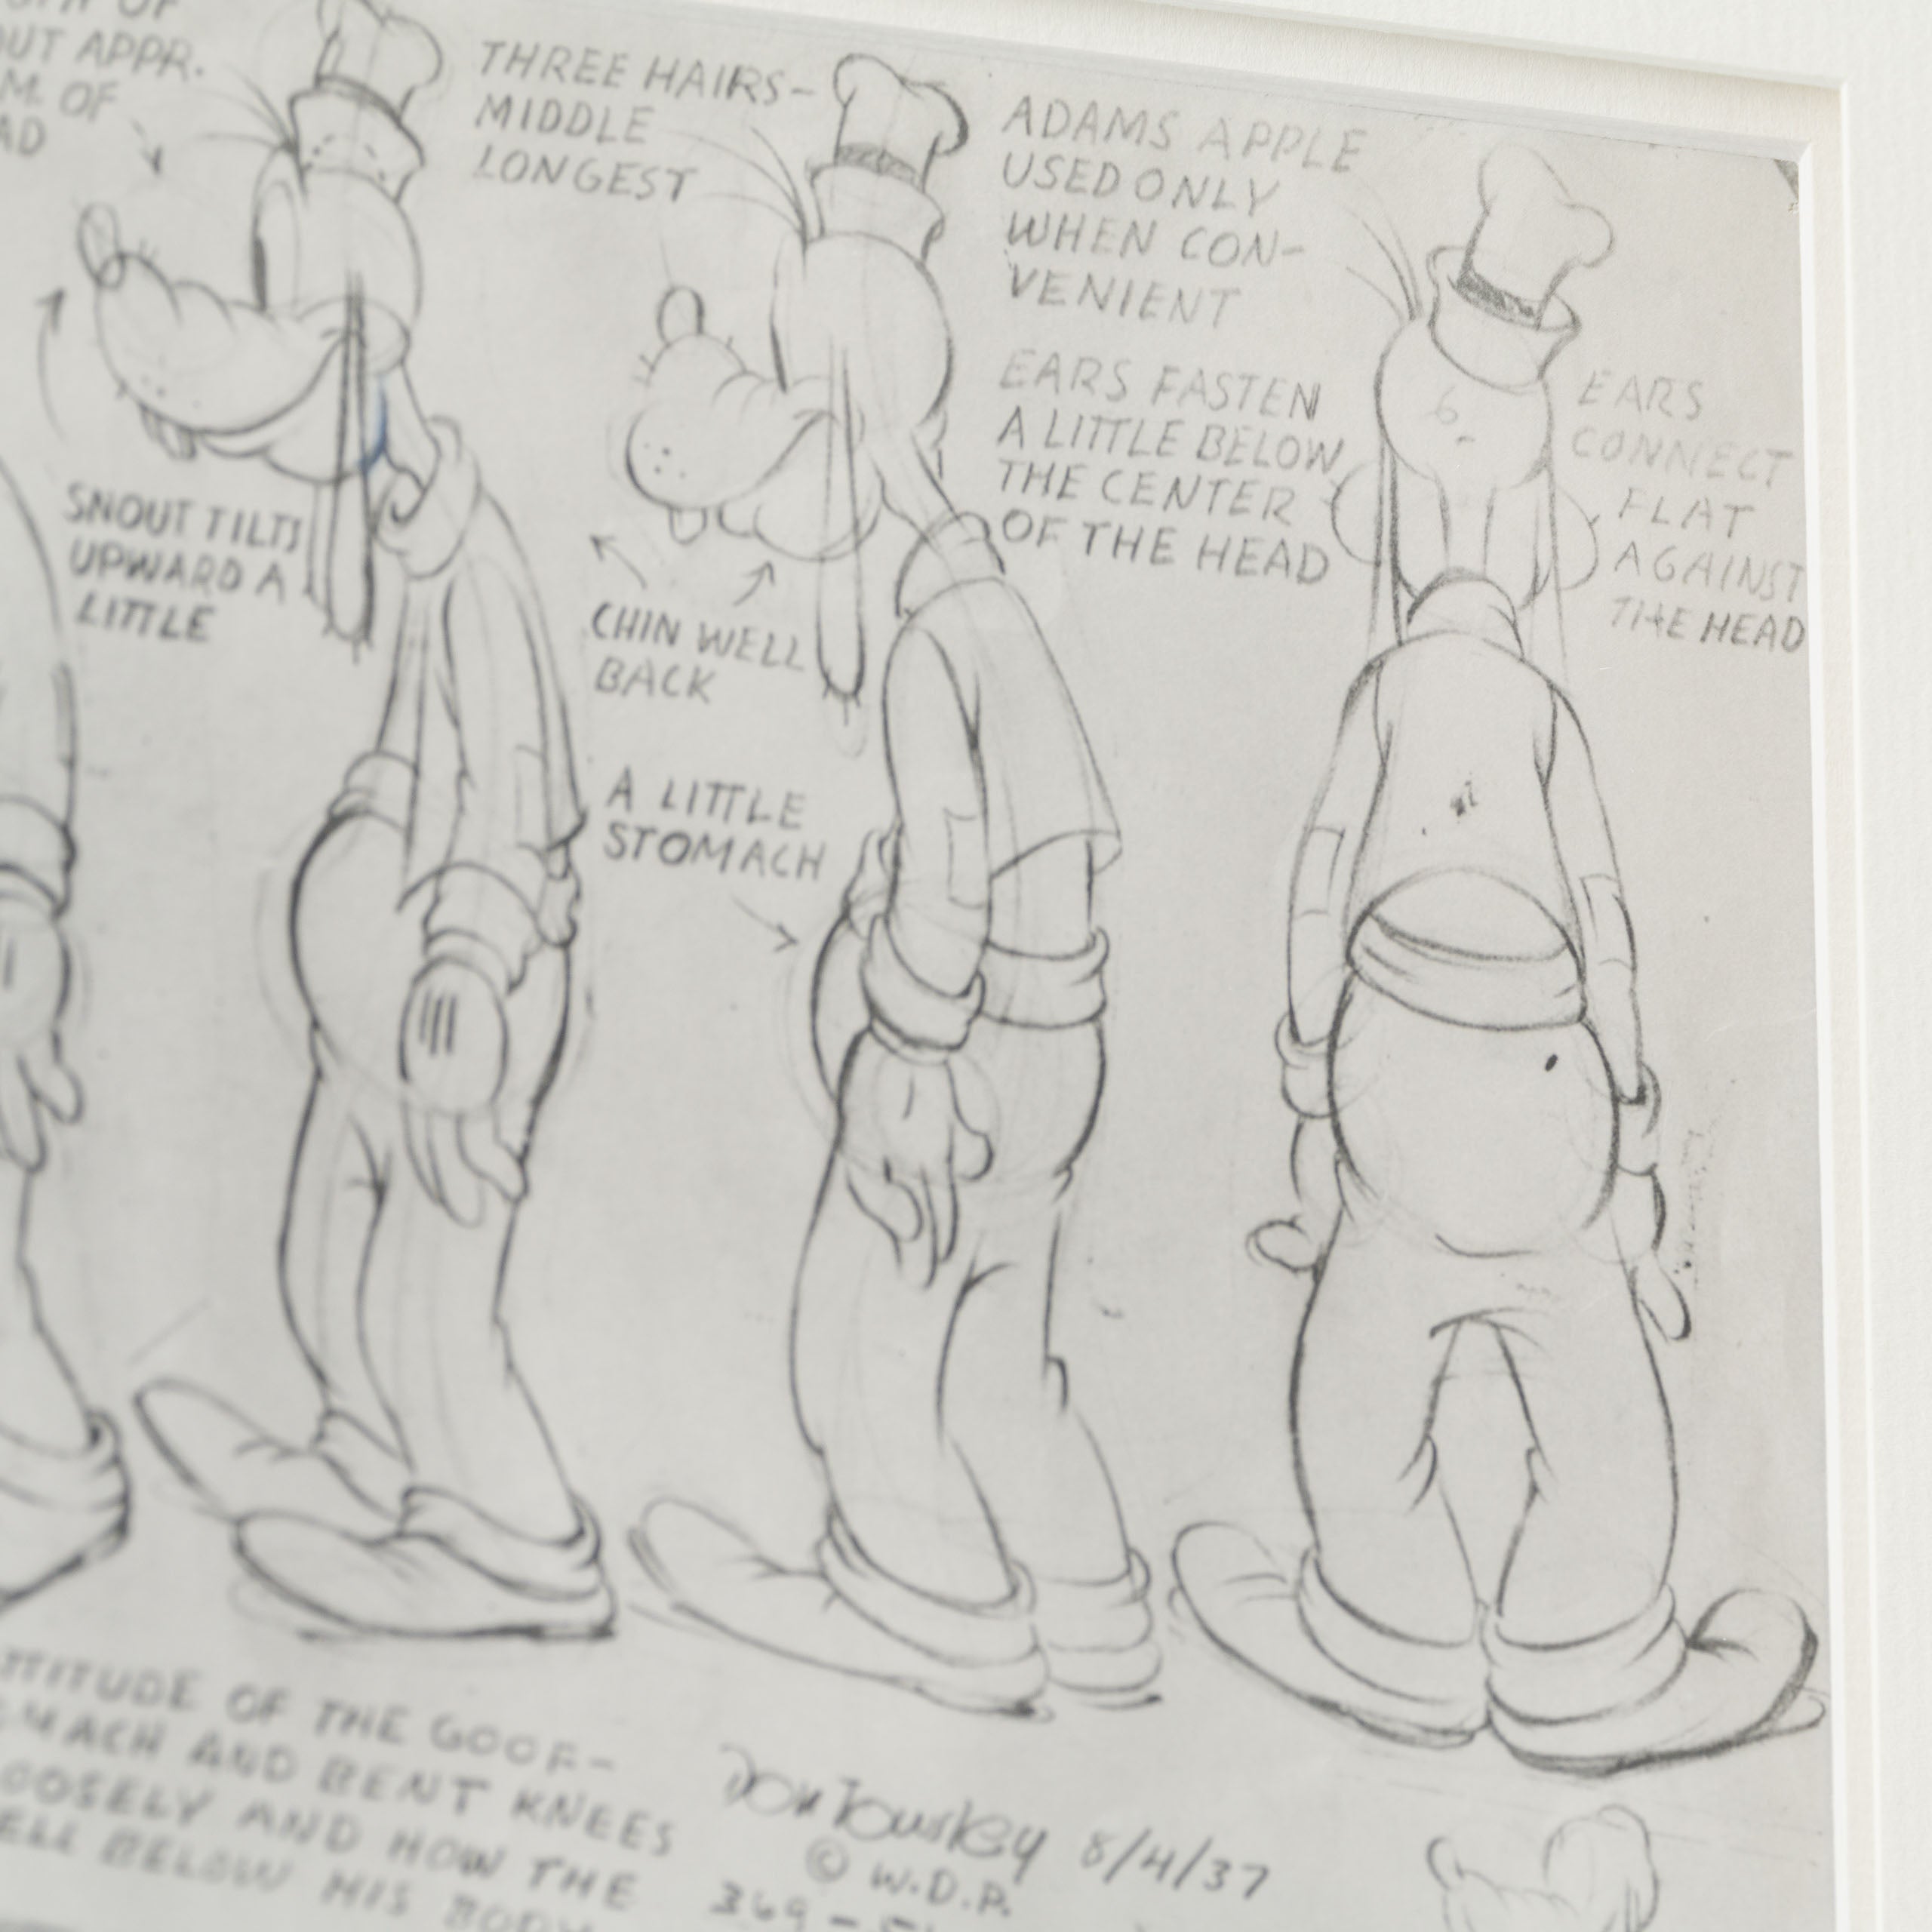 OF
OUT APPR.
OF
THREE HAIRS-
MIDDLE
LONGEST
ADAMS APPLE
USED ONLY
WHEN CON-
VENIENT
EARS FASTEN
A LITTLE BELOW
THE CENTER
OF THE HEAD
EARS
CONNECT
FLAT
AGAINST
THE HEAD
SNOUT TILTS
UPWARD A
LITTLE
CHIN WELL
BACK
A LITTLE
STOMACH
OF THE GOOF-
AND BENT KNEES
AND HOW THE
BELOW HIS BODY
Don Towsley 8/4/37
© W.D.P.